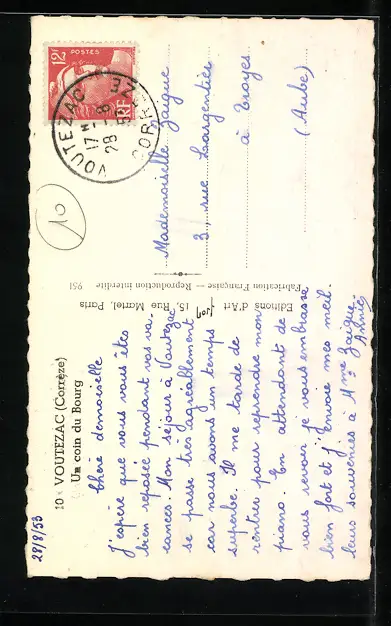 10 - VOUTEZAC (Corrèze)
Un coin du Bourg
28/8/53
Chère demoiselle
J'espère que vous vous êtes
bien reposée pendant vos va-
cances. Mon séjour à Voutezac
se passe très agréablement
car nous avons un temps
superbe. Il me tarde de
rentrer pour reprendre mon
piano. En attendant de
vous revoir je vous embrasse
bien fort et j'envoie mes meil-
leurs souvenirs à Mme
Annie
Editions d'Art 15, Rue Martel, Paris
Fabrication Française — Reproduction interdite 951
12F
POSTES
RF
VOUTEZAC
17 H
28 - 8
CORRÈZE
10
Mademoiselle
3, rue Largentier
à Troyes
(Aube)